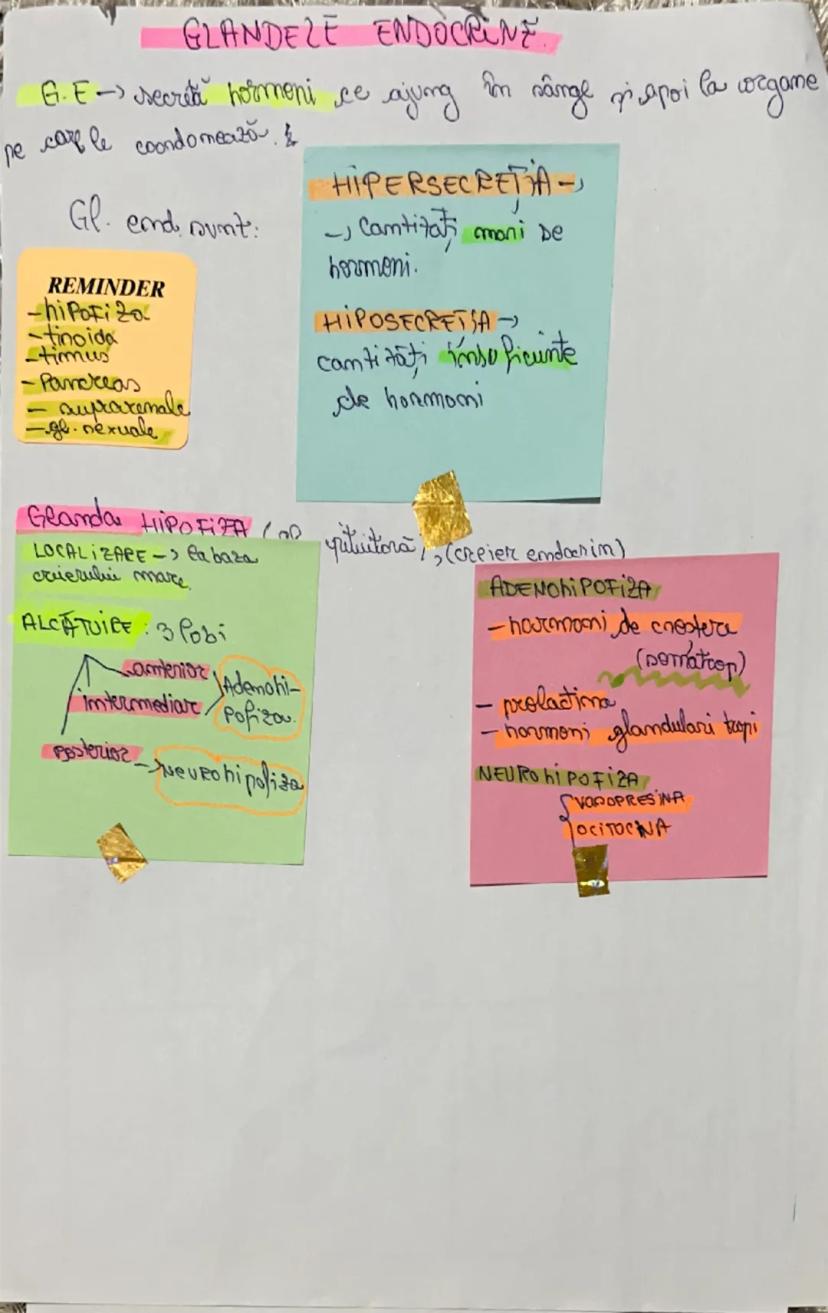 GLANDELE ENDOCRINE
G.E → secretă hormoni ce ajung în sânge și apoi la organe
pe care le coordonează.
HIPERSECREȚIA →
→ Cantități mari de
hormoni.
HIPOSECREȚIA →
cantități insuficiente
de hormoni
Gl. end. sunt:
REMINDER
- hipofiza
- tiroida
- timus
- Pancreas
- suprarenale
- gl. sexuale
Glanda HIPOFIZA (gl. pituitară), (creier endocrin)
LOCALIZARE → la baza
creierului mare.
ALCĂTUIRE: 3 lobi
anterior
intermediar
Adenohi-
pofiza
Posterior → Neurohipofiza
ADENOHIPOFIZA
- hormoni de creștere
(somatrop)
- prolactina
- hormoni glandulari tropi
NEUROHIPOFIZA
VASOPRESINA
OCITOCINA